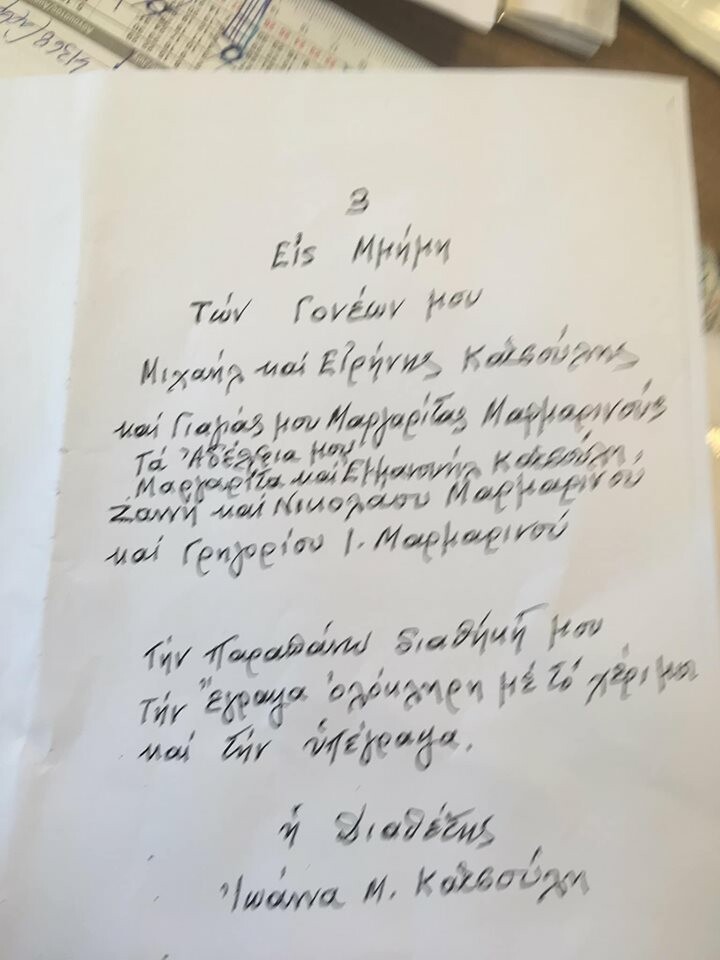 3
Εἰς Μμήμη
Τών Γονέων μου
Μιχαήλ καί Εἰρήνης Κατσούλης
καί Γιαγιάς μου Μαργαρίτας Μαρμαρινούς
Τά Ἀδέλφια μου
Μαργαρίτα καί Εμμανουήλ Κατσούλη,
Ζαννή καί Νικολάου Μαρμαρινού
καί Γρηγορίου Ι. Μαρμαρινού
Τήν Παραπάνω διαθήκή μου
Τήν Ἔγραψα ὁλόκληρη μέ τό χέρι μου
καί τήν ὑπέγραψα.
ἡ Διαθέτης
Ἰωάννα Μ. Κατσούλη